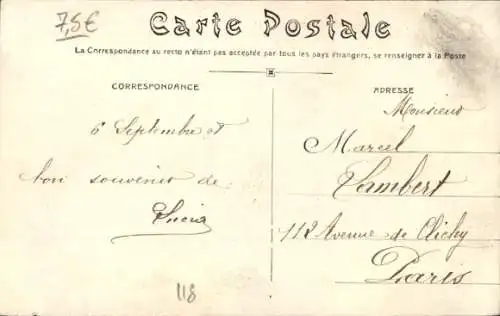 7,5€
Carte Postale
La Correspondance au recto n'étant pas acceptée par tous les pays étrangers, se renseigner à la Poste
CORRESPONDANCE
6 Septembre 08
bon souvenir de
Lucia
118
ADRESSE
Monsieur
Marcel
Lambert
112 Avenue de Clichy
Paris